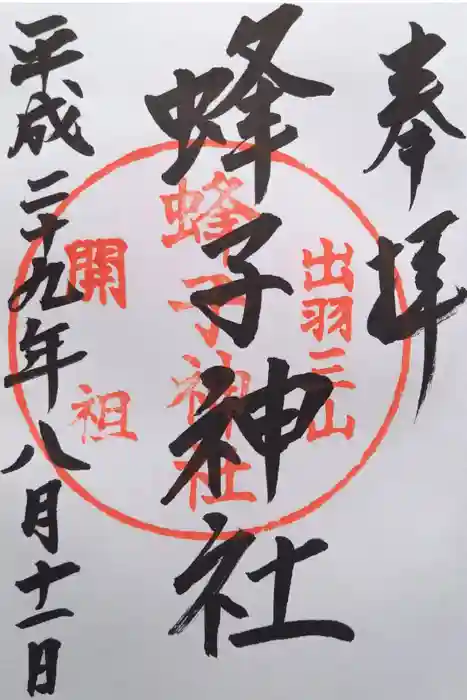 奉拝
蜂子神社
平成二十九年八月十一日
出羽三山
蜂子神社
開祖